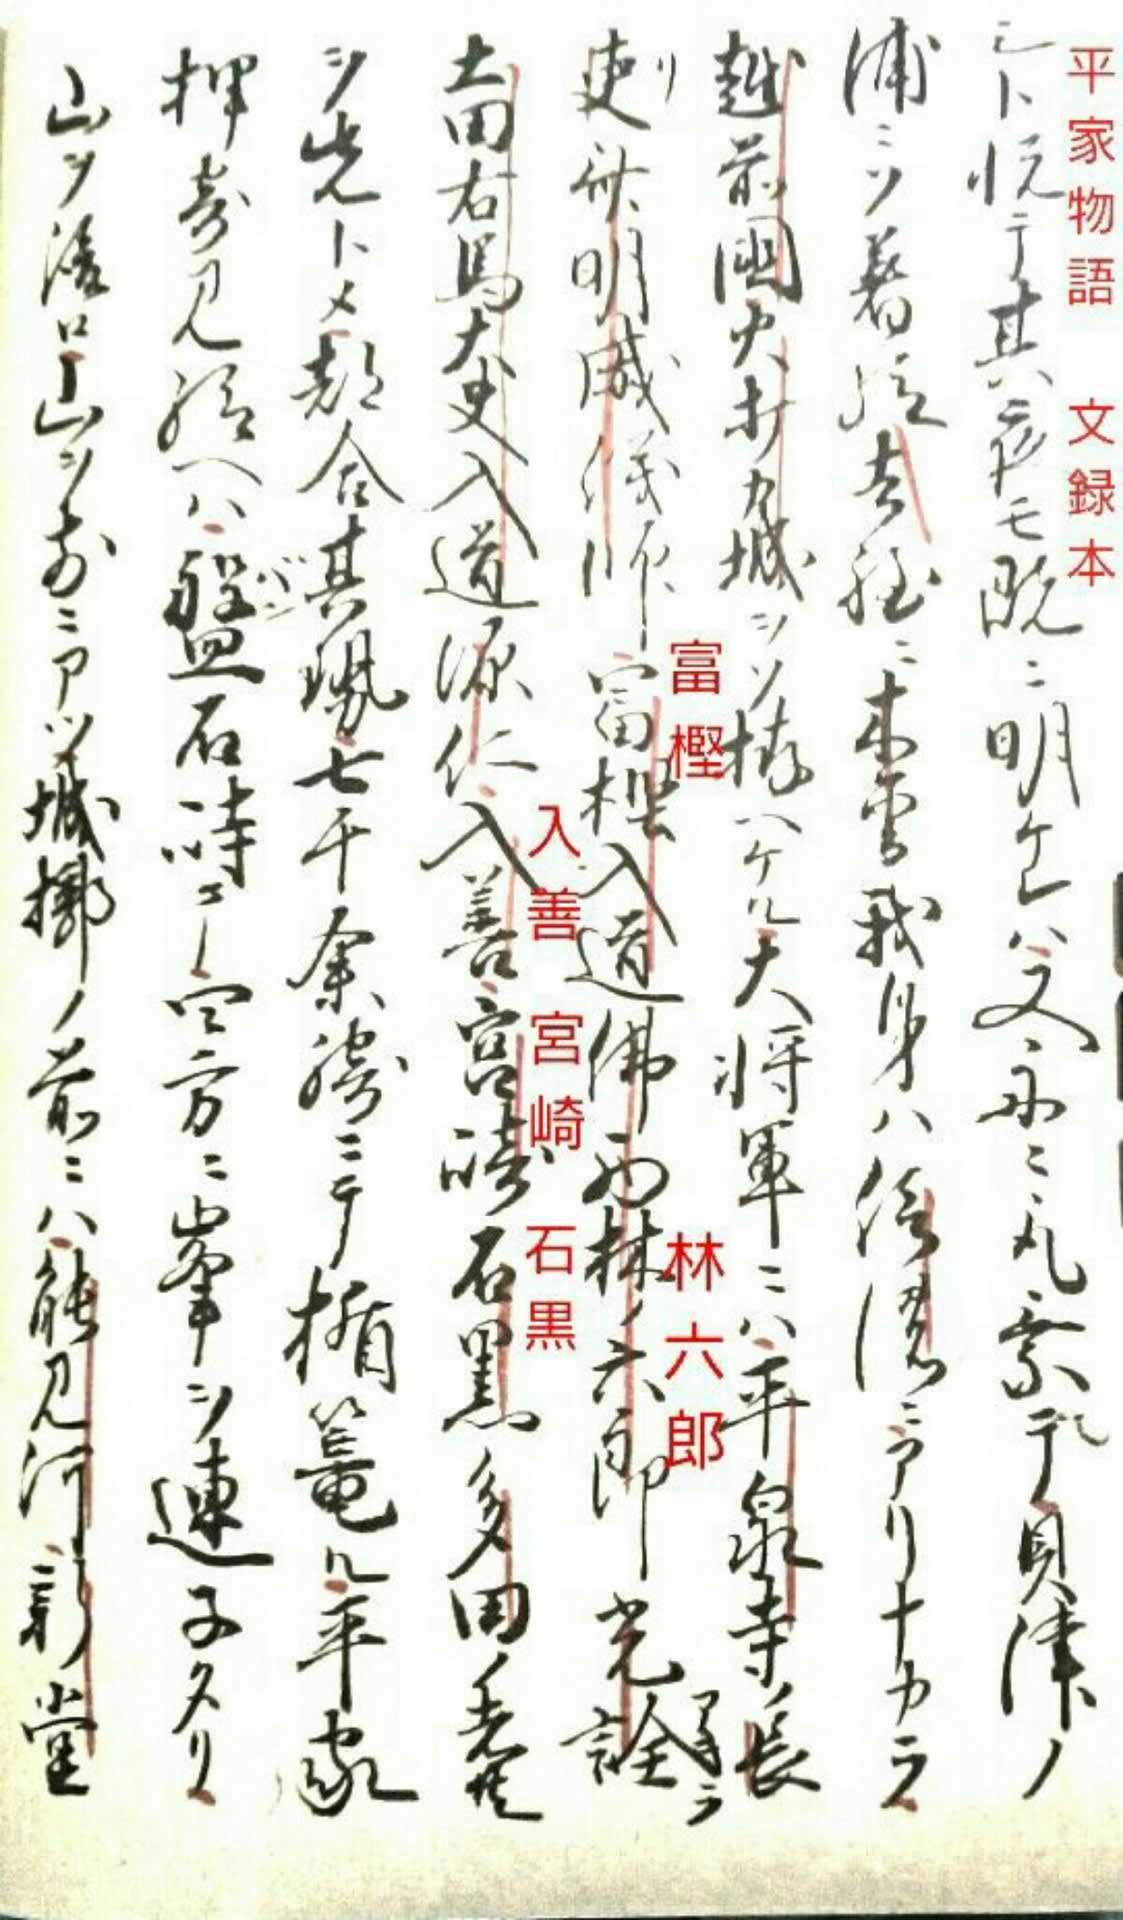 平家物語　文録本
ミト悦テ其夜モ既ニ明ケレハ又舟ニ乗テ貝津ノ
浦ニソ着給
我身ハ信濃ニアリナカラ
越前國火打カ城ヲソ構ヘケル大将軍ニハ平泉寺ノ長
吏斎明威儀師富樫入道佛西林ノ六郎光
富樫
林六郎
土田右馬大夫入道源仁入善宮崎石黒多田ノ者共
入善　宮崎　石黒
ヲ先トメ都合其勢七千余騎ニテ楯篭ル平家
押寄見給ヘハ盤石峙エー四方ニ峯ヲ連子タリ
バン
山ヲ後ロ山ヲ前ニアツ城槨ノ前ニハ能見河新堂